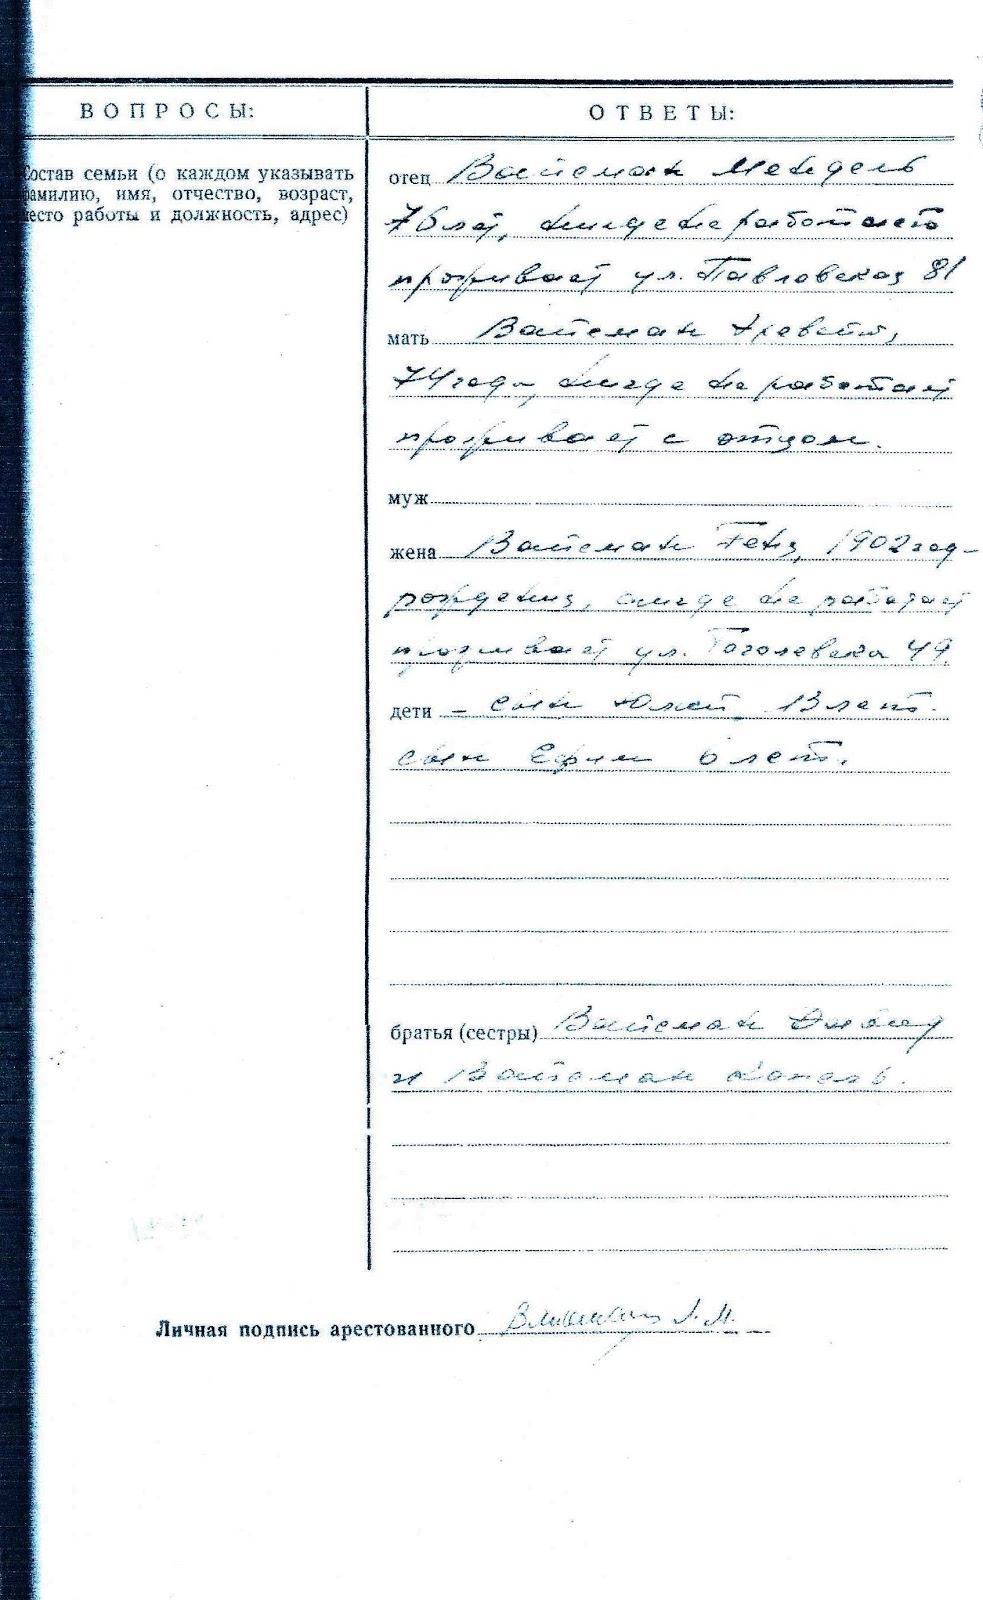 ВОПРОСЫ:
ОТВЕТЫ:
Состав семьи (о каждом указывать
фамилию, имя, отчество, возраст,
место работы и должность, адрес)
отец Вайсман Мендель
76 лет, нигде не работает
проживает ул. Павловская 81
мать Вайсман
74 года, нигде не работает
проживает с отцом.
муж
жена Вайсман Геня, 1902 год
рождения, нигде не работает
проживает ул. Гоголевская 49
дети – сын Юлий 13 лет.
сын Ефим 6 лет.
братья (сестры) Вайсман Давид
и Вайсман
Личная подпись арестованного Вайсман Л. М.